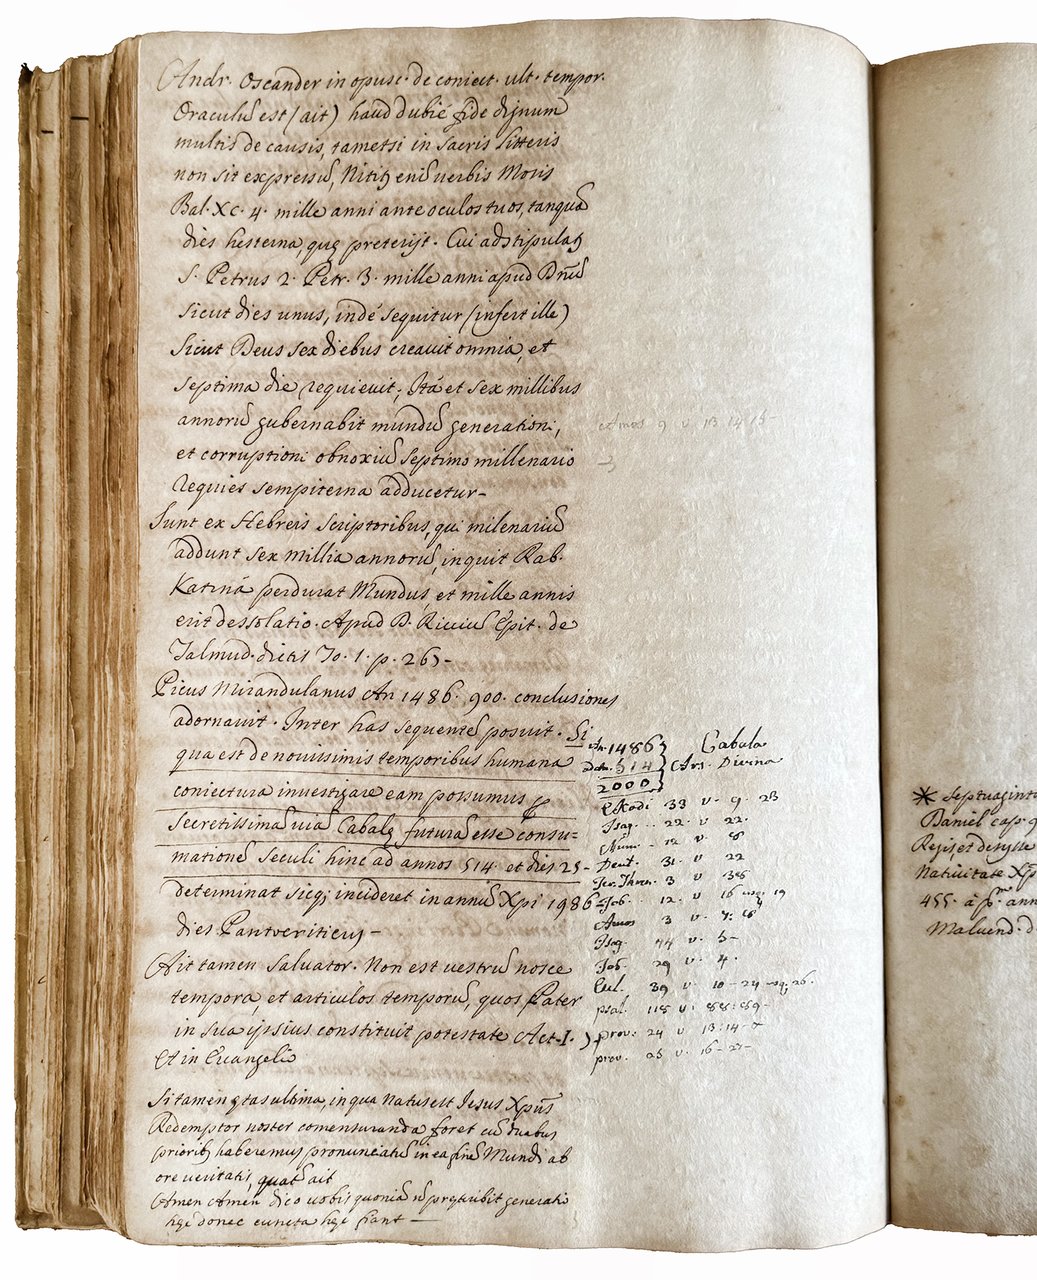 Andr. Oscander in opusc. de coniect. ult. tempor.
Oraculũ est (ait) haud dubié fide dignum
multis de causis, tametsi in sacris litteris
non sit expressũ, Nititꝫ enĩ verbis Mosis
Psal. XC. 4. mille anni ante oculos tuos, tanquã
dies hesterna, quę preterijt. Cui adstipulatꝫ
S. Petrus 2. Petr. 3. mille anni apud Dñũ
sicut dies unus, indé sequitur (infert ille)
Sicut Deus sex diebus creavit omnia, et
septima die requievit; Itá et sex millibus
annorũ gubernabit mundũ generationi,
et corruptioni obnoxiũ septimo millenario
Requies sempiterna adducetur-
Sunt ex Hebreis scriptoribus, qui milenariũ
addunt sex millia annorũ, inquit Rab.
Katiná perdurat Mundus, et mille annis
erit dessolatio. Apud P. Ricciũ Epit. de
Talmud. dictis To. 1. p. 263-
Picus Mirandulanus An 1486. 900. conclusiones
adornavit. Inter has sequentẽ posuit. Si
qua est de novissimis temporibus humana
coniectura investigare eam possumus ꝑ
secretissimã viã Cabalę futurã esse consu-
mationẽ seculi hinc ad annos 514. et dies 25-
determinat sicqꝫ incideret in annũ Xpi 1986
dies
Ait tamen Salvator. Non est vestrũ nosce
tempora, et articulos temporũ, quos Pater
in sua ipsius constituit potestate Act. I.
Et in Evangelio
Si tamen ętas ultima, in qua natus est Iesus Xpũs
Redemptor noster comensuranda foret cũ duabus
prioribꝫ haberemus pronunciatũ in ea finẽ Mundi ab
ore veritatis, quatẽ ait
Amen Amen dico vobis quoniã ñ pręteribit generatio
hęc donec cuncta hęc fiant —
Amos 9 v 13 14 15-
An. 1486
514
2000
Cabula
Ars. Divina
33 v. 9. 23
Isay. . . 22. v 22.
Num. - 12 v. 8
Deut. 31. v 22
Ier. Thren. 3 v 38
Job. 12. v 16 usq; 19
Amos 3 v. 7: 8
Isay. 44 v. 3-
Job. 29 v. 4.
Eccl. 39 v. 10-24 usq; 26.
psal. 118 v. 88: 89-
prov. 24 v 13: 14-
prov. v. 16-
* Septuaginta
Daniel cap. 9
Regis, et
Nativitate Xp
455. a pᵐ ann
Malvend. d